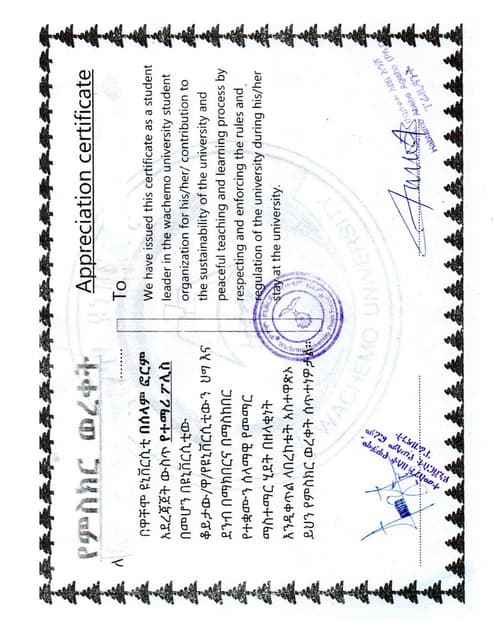 የምስክር ወረቀት
ለ ........
በዋቸሞ ዩኒቨርሲቲ በሰላም ፎርም
አደረጃጀት ውስጥ የተማሪ ፖሊስ
በመሆን በዩኒቨርሲቲው
ቆይታው/ዋ/የዩኒቨርሲቲውን ህግ እና
ደንብ በማክበርና በማስከበር
የተቋሙን ሰላማዊ የመማር
ማስተማር ሂደት በዘላቂነት
እንዲቀጥል ላበረከቱት አስተዋጽኦ
ይህን የምስክር ወረቀት ሰጥተነዎታል።
Appreciation certificate
To
We have issued this certificate as a student
leader in the wachemo university student
organization for his/her/ contribution to
the sustainability of the university and
peaceful teaching and learning process by
respecting and enforcing the rules and
regulation of the university during his/her
stay at the university.
WACHEMO UNIVERSITY